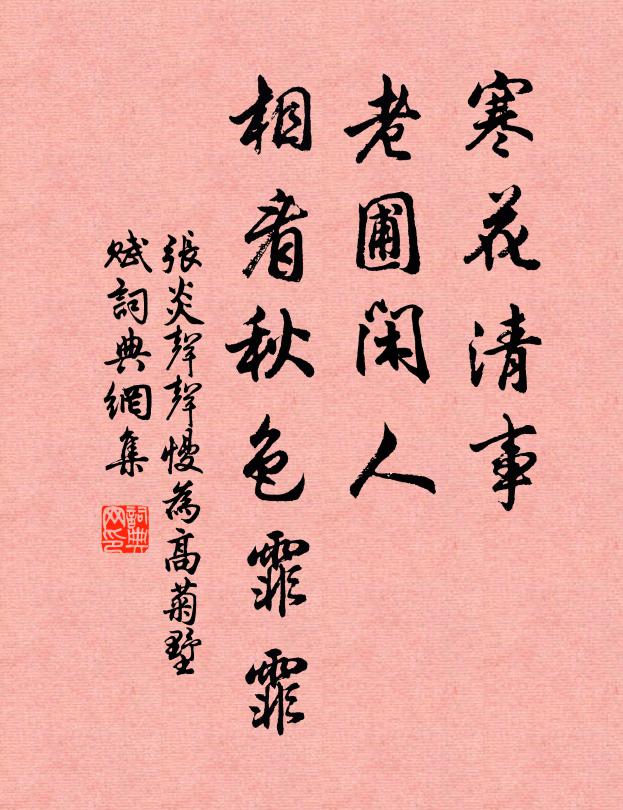 寒花清事
老圃閑人
相看秋色霏霏
張炎聲聲慢為高菊墅
賦詞典網集
詞典
网印